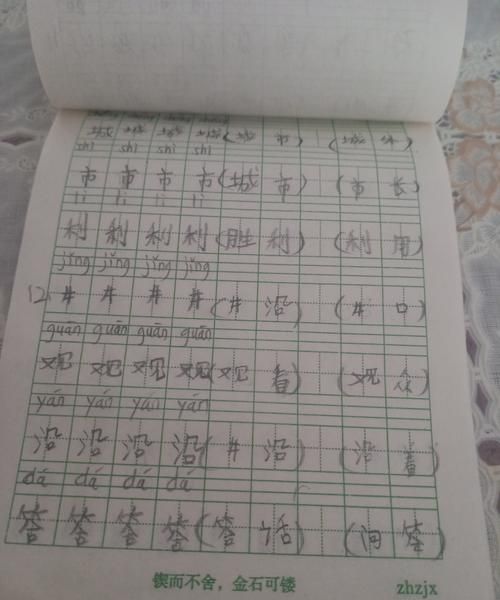 城 城 城 城 (城 市) (城 外)
shì shì shì shì
市 市 市 市 (城 市) (市 长)
lì lì lì lì
利 利 利 利 (胜 利) (利 用)
jǐng jǐng jǐng jǐng
12. 井 井 井 井 (井 沿) (井 口)
guān guān guān guān
观 观 观 观 (观 看) (观 众)
yán yán yán yán
沿 沿 沿 沿 (井 沿) (沿 着)
dá dá dá dá
答 答 答 答 (答 话) (问 答)
锲而不舍，金石可镂 zhzjx